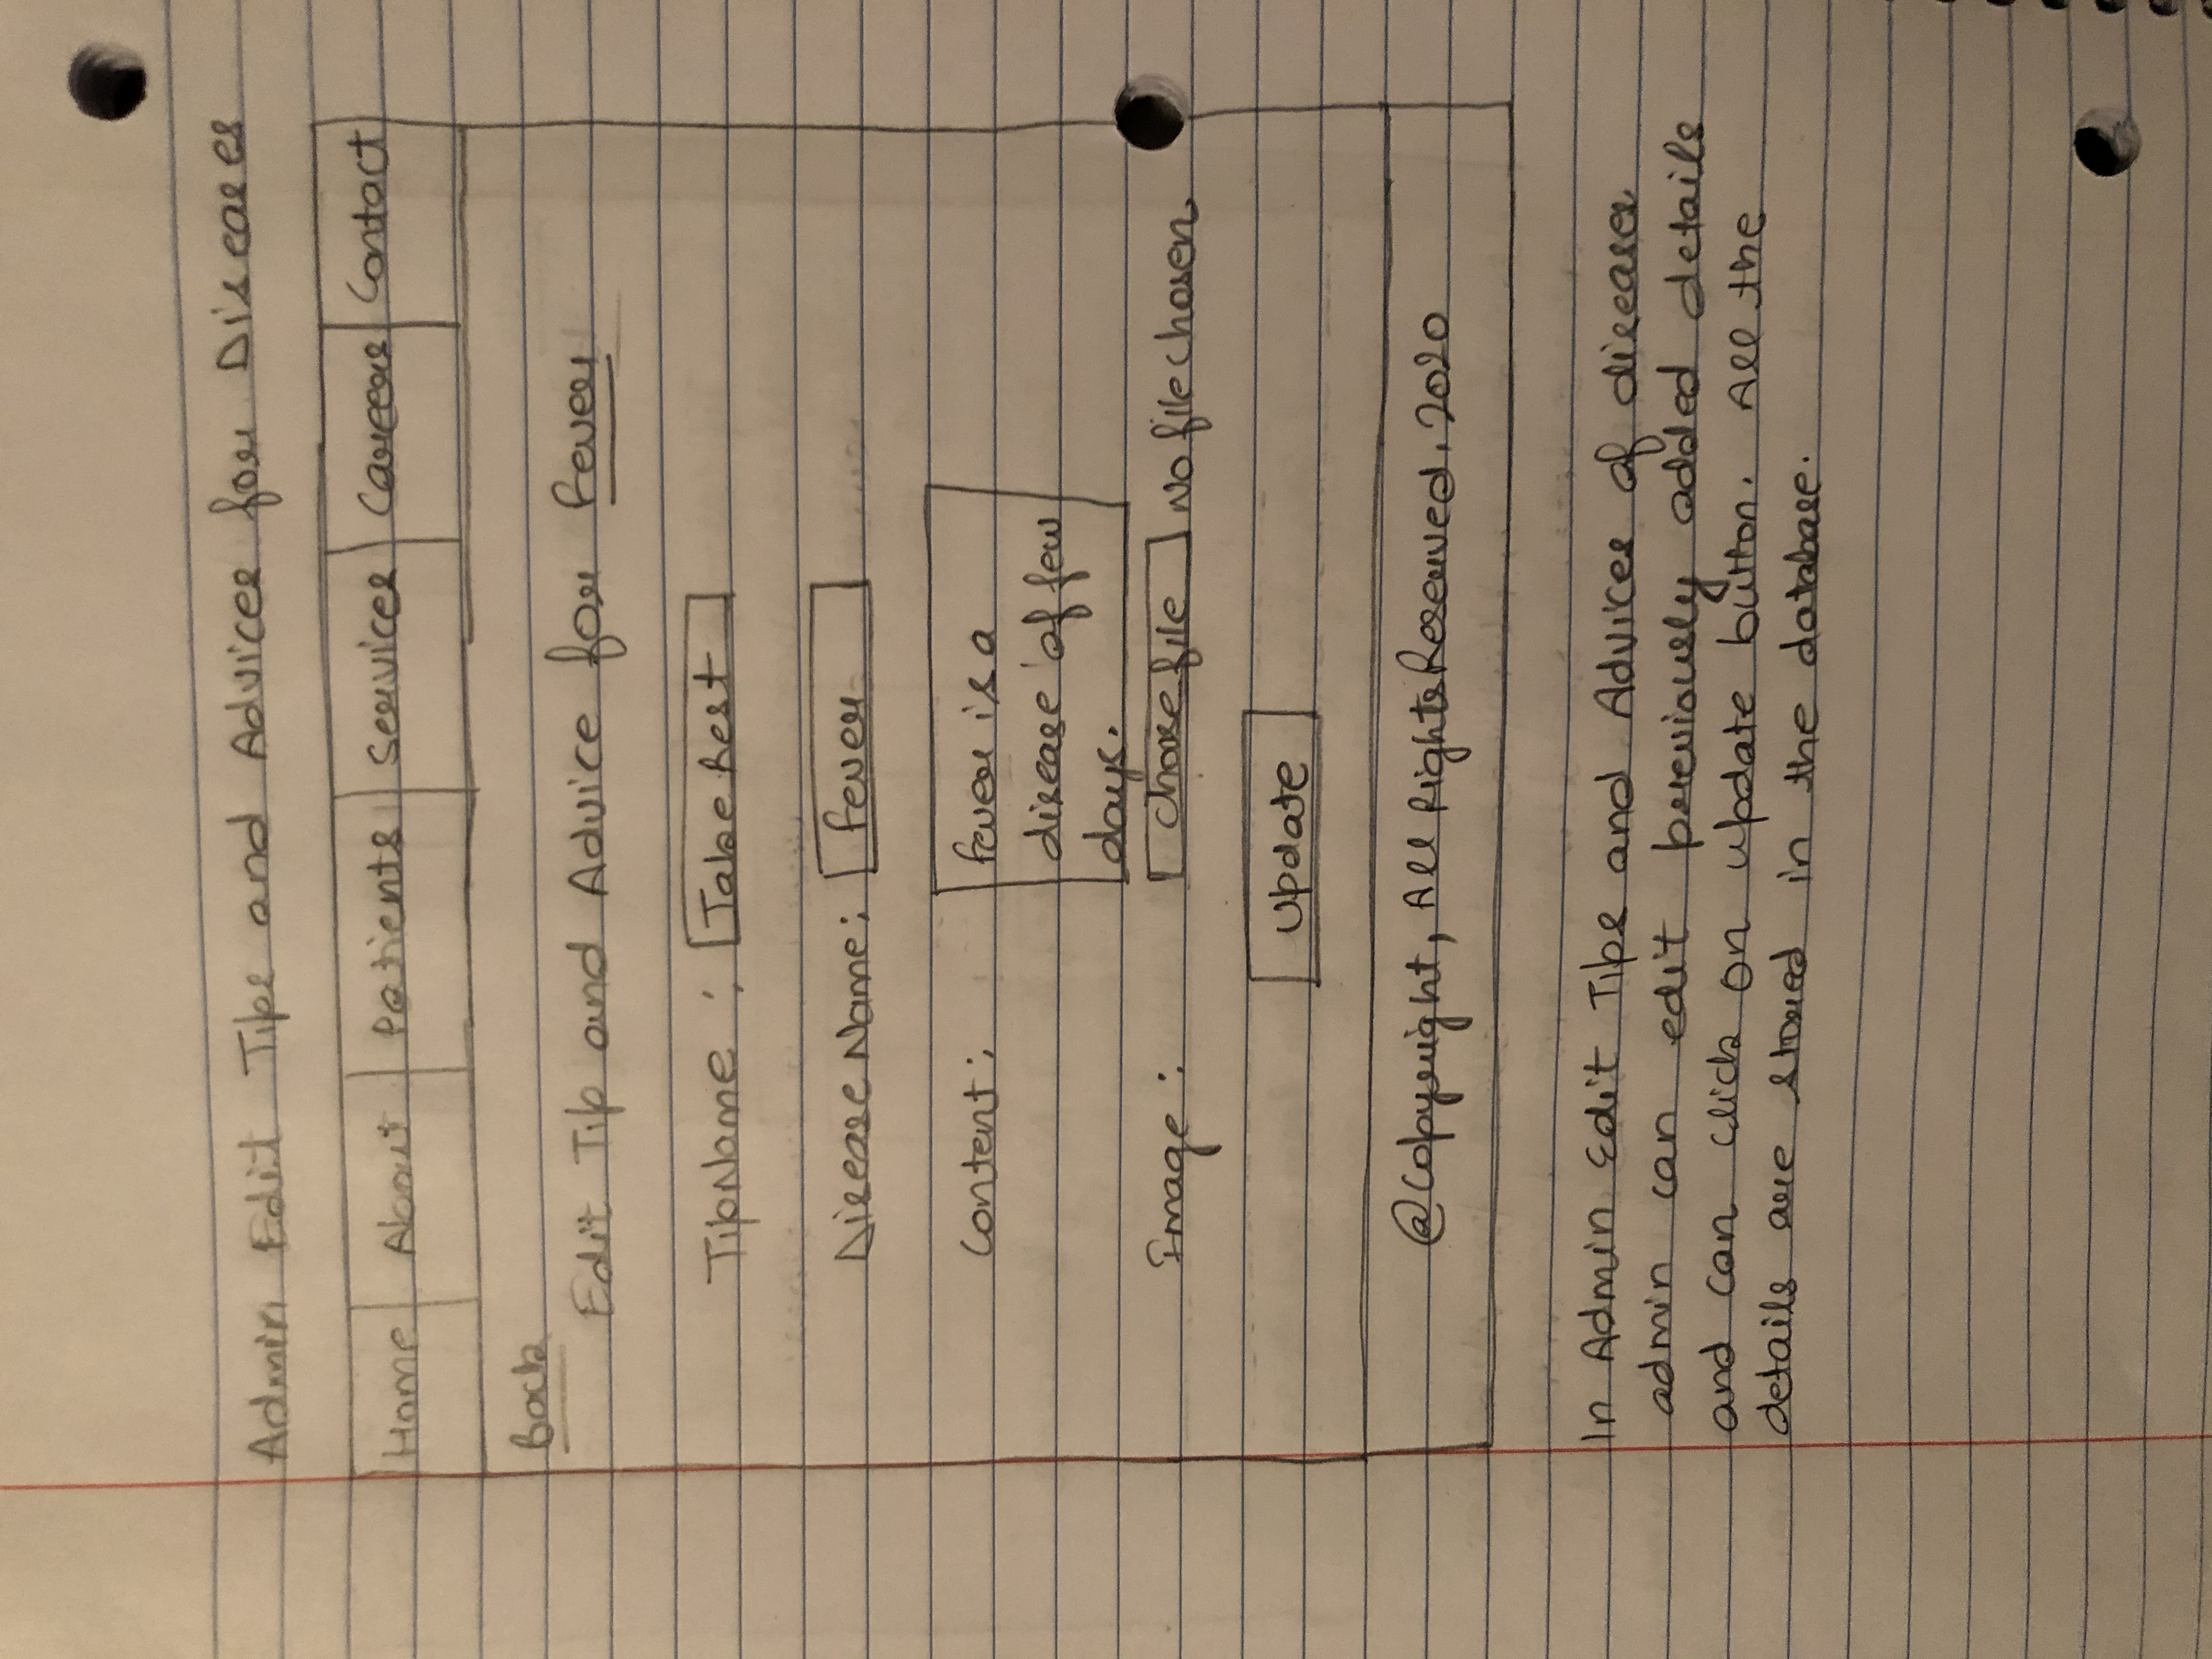 Admin Edit Tips and Advices for Diseases
Home About Patients Services Careers Contact
Back
Edit Tip and Advice for Fever
TipName : Take Rest
Disease Name: Fever
Content: fever is a
disease of few
days.
Image : Choose file No file chosen
Update
@Copyright, All Rights Reserved. 2020
In Admin Edit Tips and Advices of diseases
admin can edit previously added details
and can click on update button. All the
details are stored in the database.